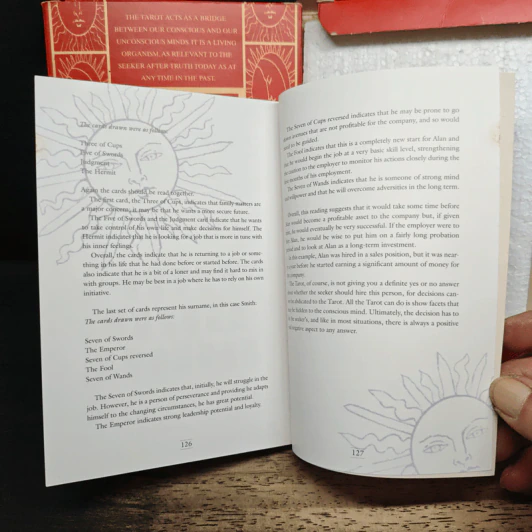 THE TAROT ACTS AS A BRIDGE
BETWEEN OUR CONSCIOUS AND OUR
UNCONSCIOUS MINDS. IT IS A LIVING
ORGANISM, AS RELEVANT TO THE
SEEKER AFTER TRUTH TODAY AS AT
ANY TIME IN THE PAST.
The cards drawn were as follows:
Three of Cups
Five of Swords
Judgment
The Hermit
Again the cards should be read together.
The first card, the Three of Cups, indicates that family matters are
a major concern; it may be that he wants a more secure future.
The Five of Swords and the Judgment card indicate that he wants
to take control of his own life and make decisions for himself. The
Hermit indicates that he is looking for a job that is more in tune with
his inner feelings.
Overall, the cards indicate that he is returning to a job or some-
thing in his life that he had done before or started before. The cards
also indicate that he is a bit of a loner and may find it hard to mix in
with groups. He may be best in a job where he has to rely on his own
initiative.
The last set of cards represent his surname, in this case Smith.
The cards drawn were as follows:
Seven of Swords
The Emperor
Seven of Cups reversed
The Fool
Seven of Wands
The Seven of Swords indicates that, initially, he will struggle in the
job. However, he is a person of perseverance and providing he adapts
himself to the changing circumstances, he has great potential.
The Emperor indicates strong leadership potential and loyalty.
126
The Seven of Cups reversed indicates that he may be prone to go
avenues that are not profitable for the company, and so would
to be guided.
The Fool indicates that this is a completely new start for Alan and
he would begin the job at a very basic skill level, strengthening
to the employer to monitor his actions closely during the
months of his employment.
The Seven of Wands indicates that he is someone of strong mind
willpower and that he will overcome adversities in the long term.
Overall, this reading suggests that it would take some time before
would become a profitable asset to the company but, if given
he would eventually be very successful. If the employer were to
him, he would be wise to put him on a fairly long probation
and to look at Alan as a long-term investment.
In this example, Alan was hired in a sales position, but it was near-
year before he started earning a significant amount of money for
company.
The Tarot, of course, is not giving you a definite yes or no answer
whether the seeker should hire this person, for decisions can-
be dedicated to the Tarot. All the Tarot can do is show facets that
be hidden to the conscious mind. Ultimately, the decision has to
be the seeker's, and like in most situations, there is always a positive
negative aspect to any answer.
127